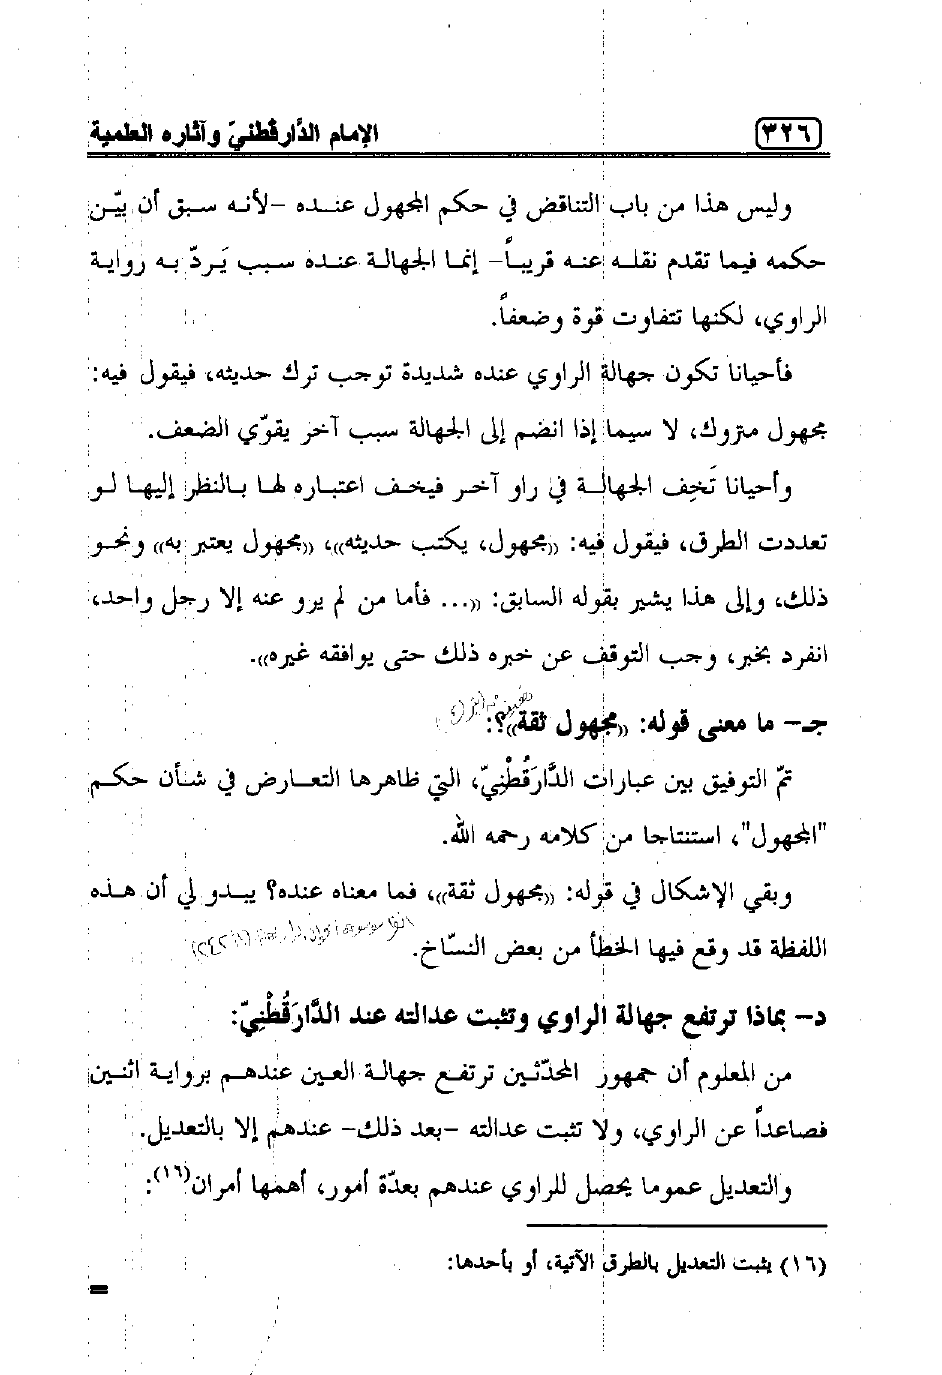 ٣٢٦ الإمام الدَّارقُطنيّ وآثاره العلمية
وليس هذا من باب التناقض في حكم المجهول عنده -لأنه سبق أن بيّن
حكمه فيما تقدم نقله عنه قريباً- إنما الجهالة عنده سبب يَردّ به رواية
الراوي، لكنها تتفاوت قوة وضعفاً.
فأحيانا تكون جهالة الراوي عنده شديدة توجب ترك حديثه، فيقول فيه:
مجهول متروك، لا سيما إذا انضم إلى الجهالة سبب آخر يقوّي الضعف.
وأحيانا تَخِف الجهالة في راو آخر فيخف اعتباره لها بالنظر إليها لو
تعددت الطرق، فيقول فيه: «مجهول، يكتب حديثه»، «مجهول يعتبر به» ونحو
ذلك، وإلى هذا يشير بقوله السابق: «... فأما من لم يرو عنه إلا رجل واحد،
انفرد بخبر، وجب التوقف عن خبره ذلك حتى يوافقه غيره».
جـ- ما معنى قوله: «مجهول ثقة»؟:
تمّ التوفيق بين عبارات الدَّارَقُطْنِيّ، التي ظاهرها التعارض في شأن حكم
"المجهول"، استنتاجا من كلامه رحمه الله.
وبقي الإشكال في قوله: «مجهول ثقة»، فما معناه عنده؟ يبدو لي أن هذه
اللفظة قد وقع فيها الخطأ من بعض النسّاخ.
د- بماذا ترتفع جهالة الراوي وتثبت عدالته عند الدَّارَقُطْنِيّ:
من المعلوم أن جمهور المحدّثين ترتفع جهالة العين عندهم برواية اثنين
فصاعداً عن الراوي، ولا تثبت عدالته -بعد ذلك- عندهم إلا بالتعديل.
والتعديل عموما يحصل للراوي عندهم بعدّة أمور، أهمها أمران(١٦):
(١٦) يثبت التعديل بالطرق الآتية، أو بأحدها:
=